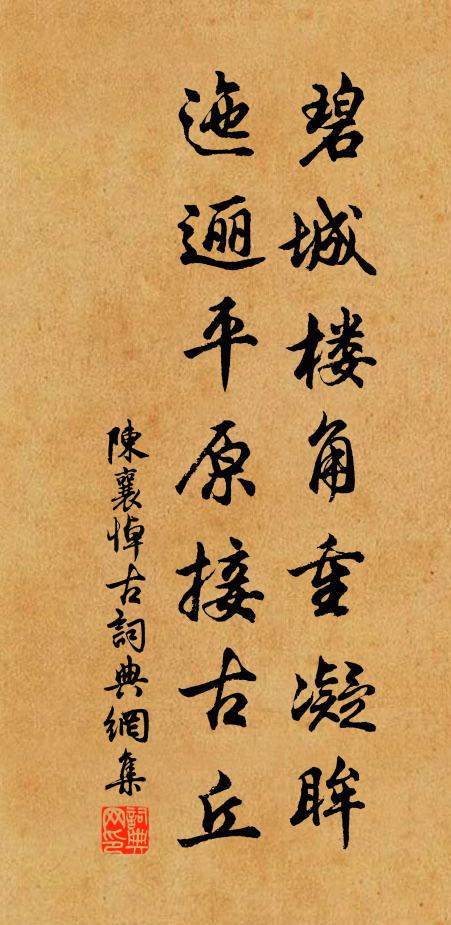 碧城楼角重凝眸
迤逦平原接古丘
陳襄悼古詞典網集
詞典网印